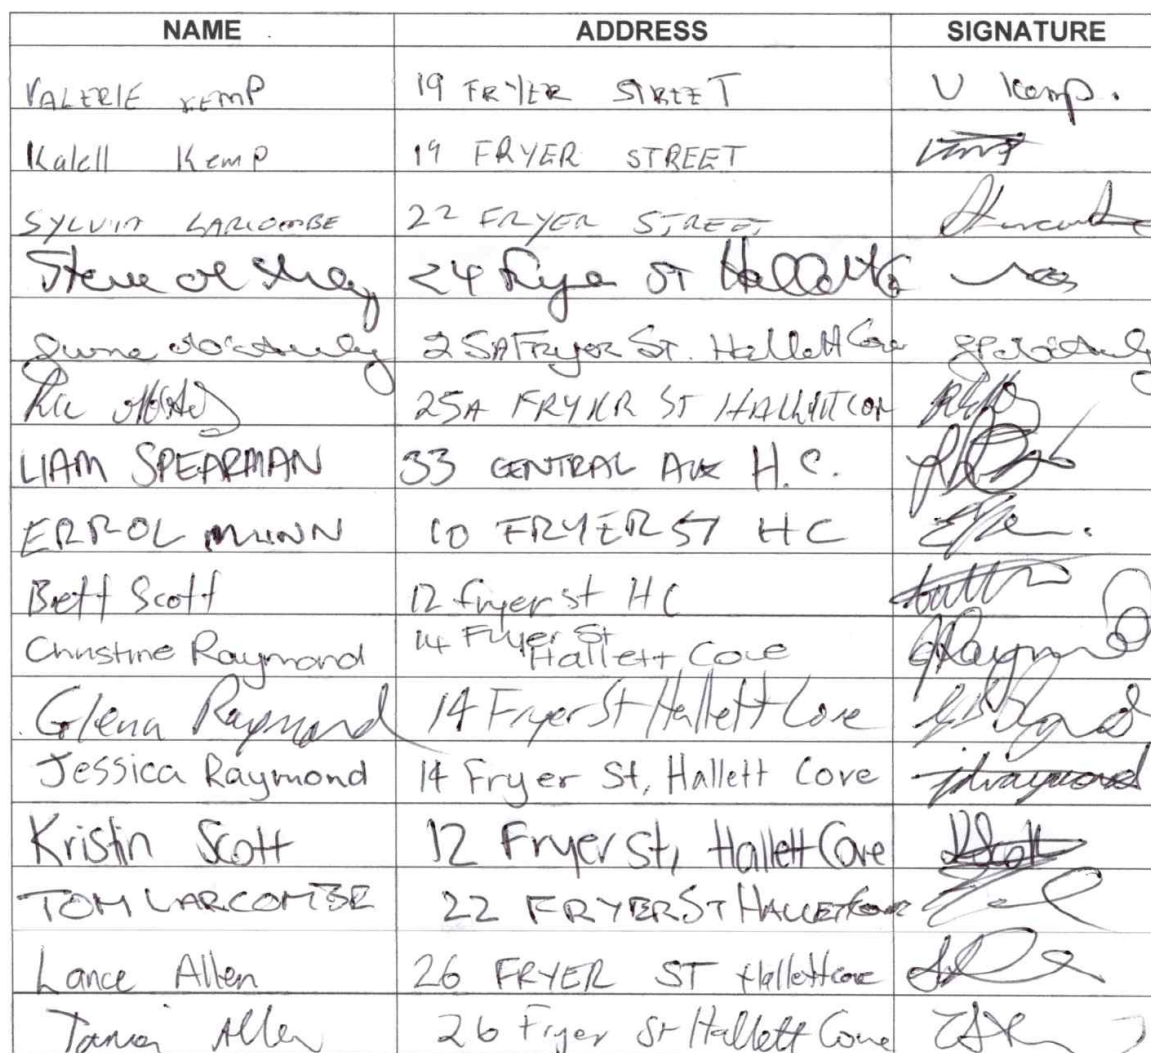 NAME ADDRESS SIGNATURE
VALERIE KEMP 19 FRYER STREET V Kemp.
Kalell Kemp 19 FRYER STREET
SYLVIA LARCOMBE 22 FRYER STREET
Steve 24 Fryer ST
June 25A Fryer St. Hallett Cove
25A FRYER ST HALLETT COV
LIAM SPEARMAN 33 CENTRAL AVE H.C.
ERROL MUNN 10 FRYER ST HC
Brett Scott 12 fryer st HC
Christine Raymond 14 Fryer St Raymond
Hallett Cove
Glenn Raymond 14 Fryer St Hallett Cove
Jessica Raymond 14 Fryer St, Hallett Cove jdraymond
Kristin Scott 12 Fryer st, Hallett Cove KScott
TOM LARCOMBE 22 FRYER ST HALLETT Cove
Lance Allen 26 FRYER ST Hallett cove
Tania Allen 26 Fryer St Hallett Cove